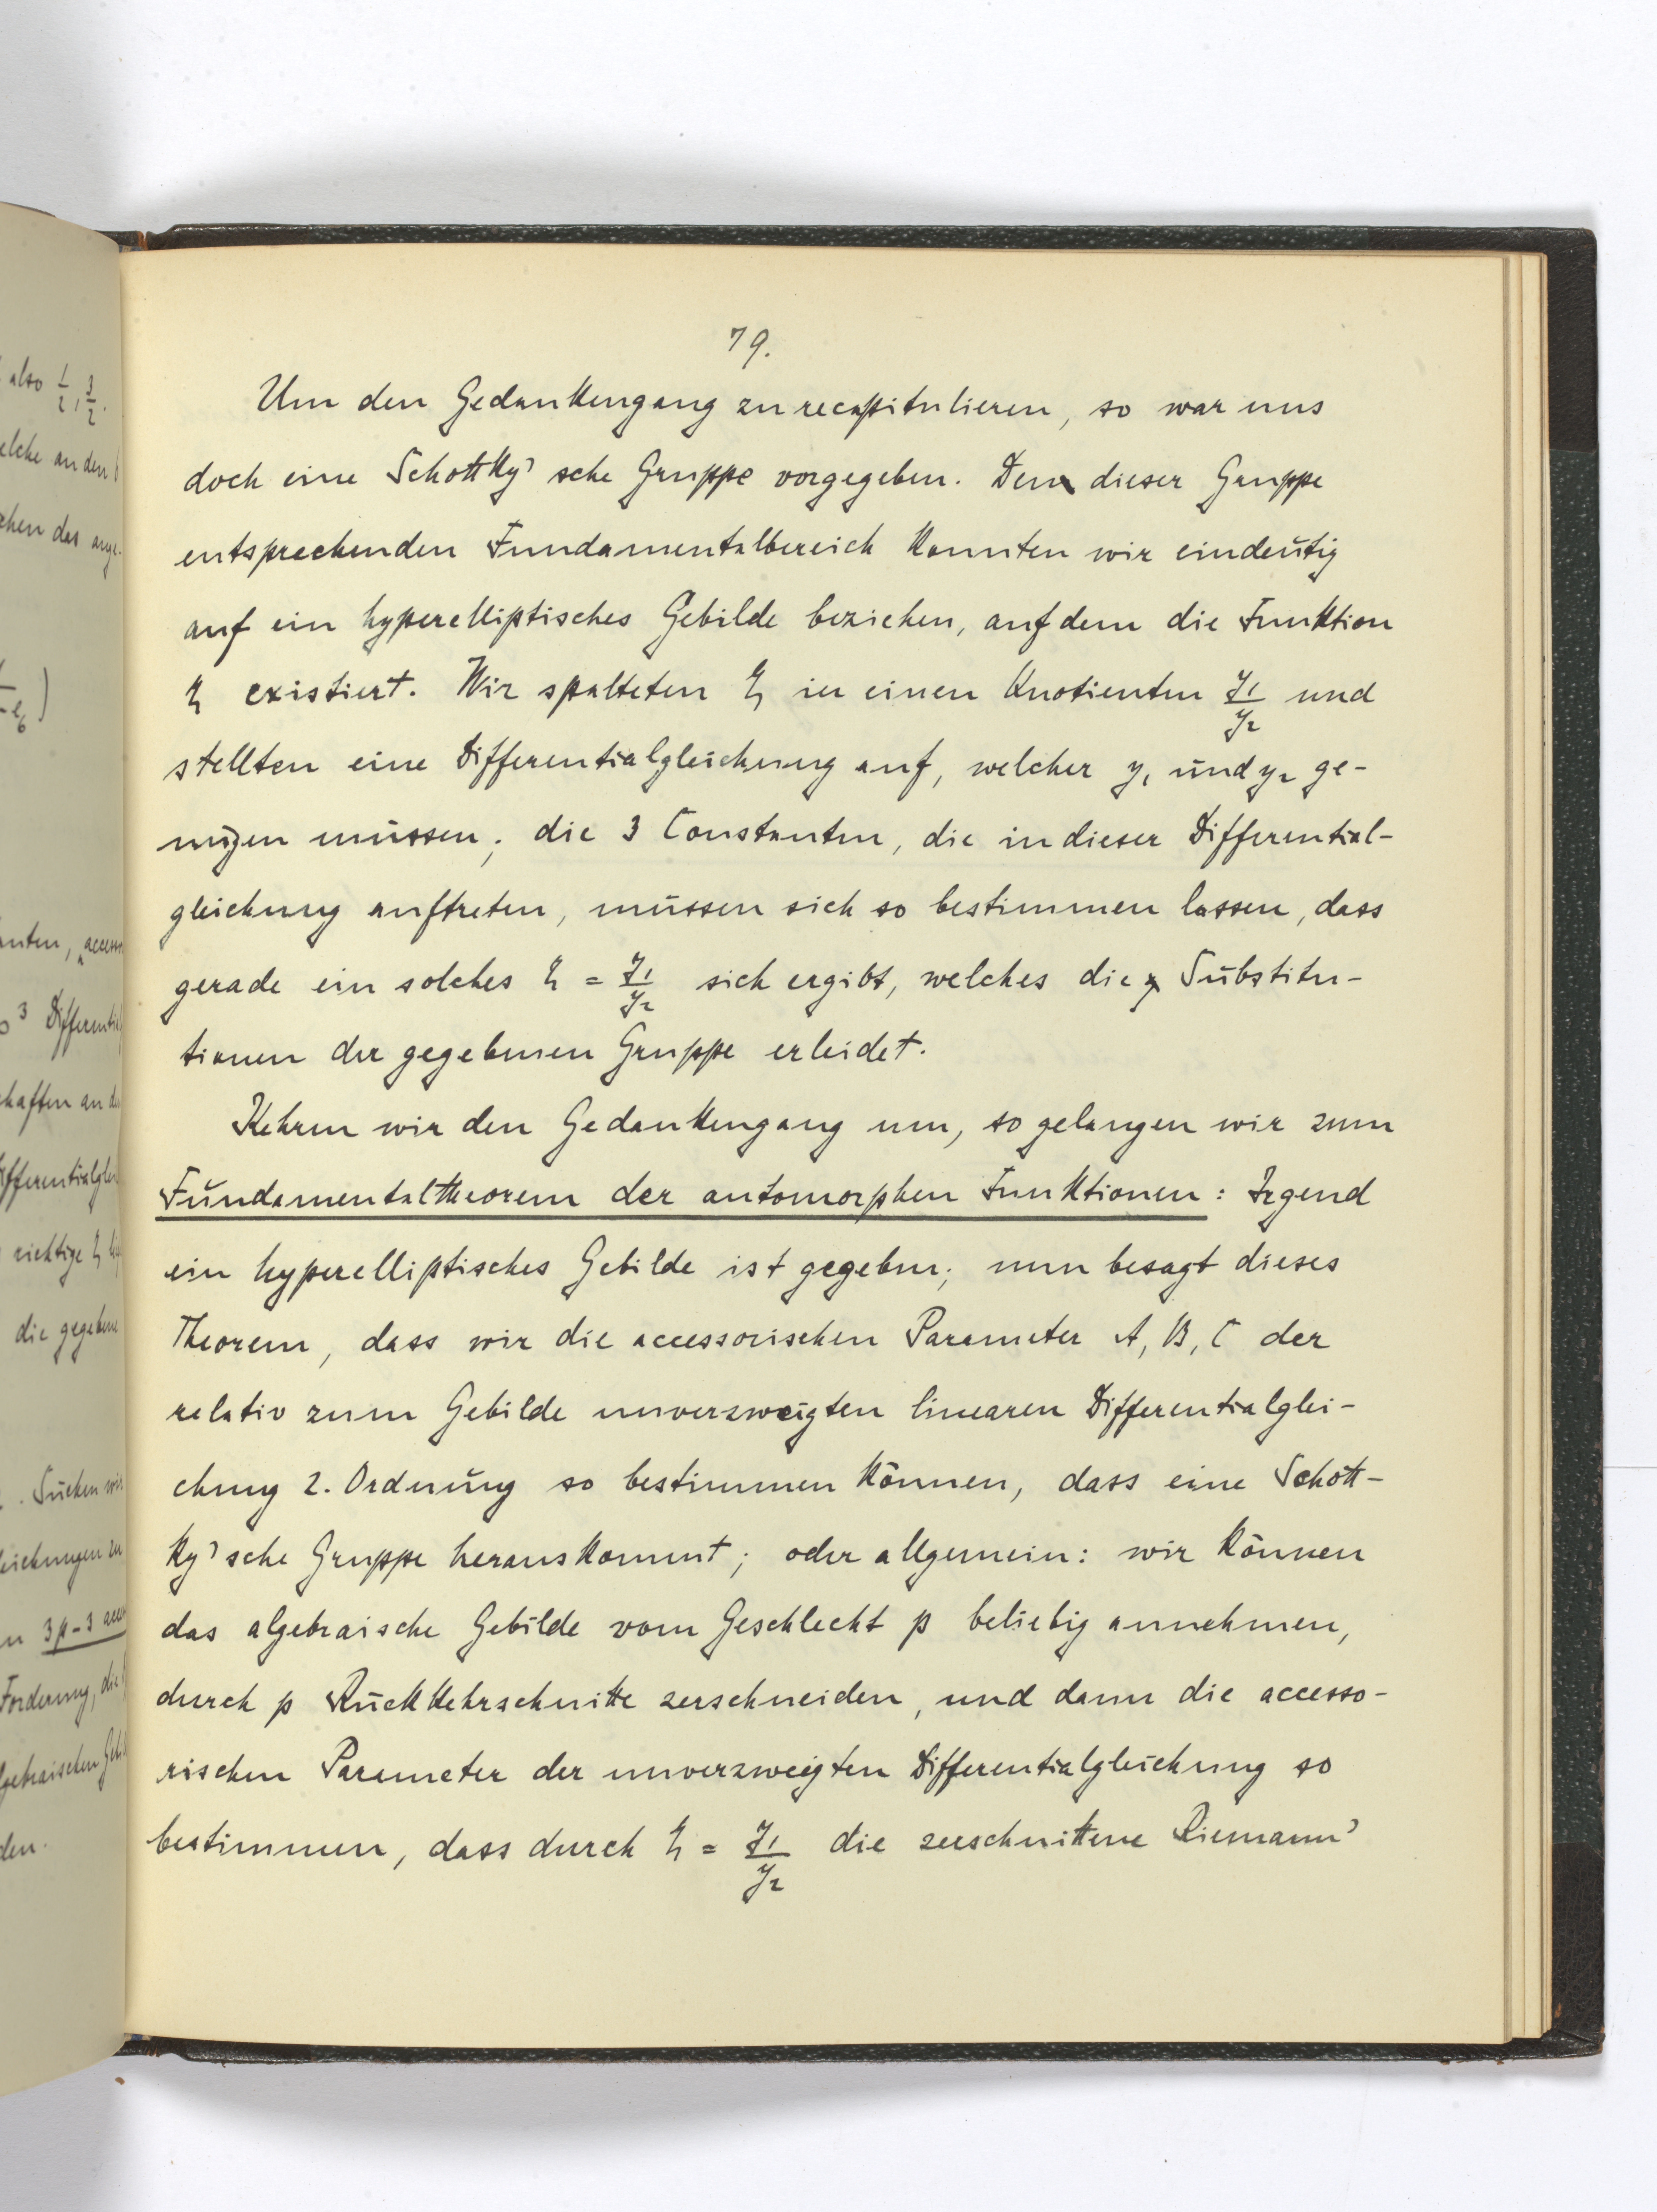 79.
Um den Gedankengang zu recapitulieren, so war uns
doch eine Schottky'sche Gruppe vorgegeben. Den dieser Gruppe
entsprechenden Fundamentalbereich konnten wir eindeutig
auf ein hyperelliptisches Gebilde beziehen, auf dem die Funktion
η existiert. Wir spalteten η in einen Quotienten y₁/y₂ und
stellten eine Differentialgleichung auf, welcher y₁ und y₂ ge-
nügen müssen; die 3 Constanten, die in dieser Differential-
gleichung auftreten, müssen sich so bestimmen lassen, dass
gerade ein solches η = y₁/y₂ sich ergibt, welches die Substitu-
tionen der gegebenen Gruppe erleidet.
Kehren wir den Gedankengang um, so gelangen wir zum
Fundamentaltheorem der automorphen Funktionen: Irgend
ein hyperelliptisches Gebilde ist gegeben; nun besagt dieses
Theorem, dass wir die accessorischen Parameter A, B, C der
relativ zum Gebilde unverzweigten linearen Differentialglei-
chung 2. Ordnung so bestimmen können, dass eine Schott-
ky'sche Gruppe herauskommt; oder allgemein: wir können
das algebraische Gebilde vom Geschlecht p beliebig annehmen,
durch p Rückkehrschnitte zerschneiden, und dann die accesso-
rischen Parameter der unverzweigten Differentialgleichung so
bestimmen, dass durch η = y₁/y₂ die zerschnittene Riemann'
also 1/2, 3/2.
elche an den
ehen das ange-
³ Differential
haften an
ifferentialglei
richtige η
die gegebene
. Suchen wir
leichungen zu
3p-3
Forderung, die
gebraischen
den.